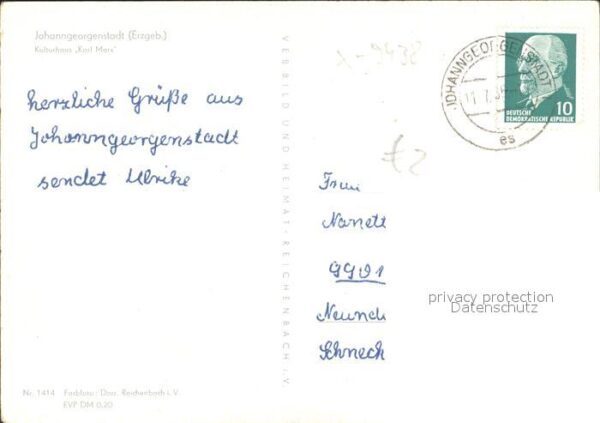 Johanngeorgenstadt (Erzgeb.)
Kulturhaus „Karl Marx"
herzliche Grüße aus
Johanngeorgenstadt
sendet Ulrike
VEB BILD UND HEIMAT · REICHENBACH i. V.
x-9438
JOHANNGEORGENSTADT
es
10
DEUTSCHE
DEMOKRATISCHE REPUBLIK
€2
Frau
Nanett
9901
Neund
Schneck
privacy protection
Datenschutz
Nr. 1414 Farbfoto: Darr, Reichenbach i. V.
EVP DM 0,20